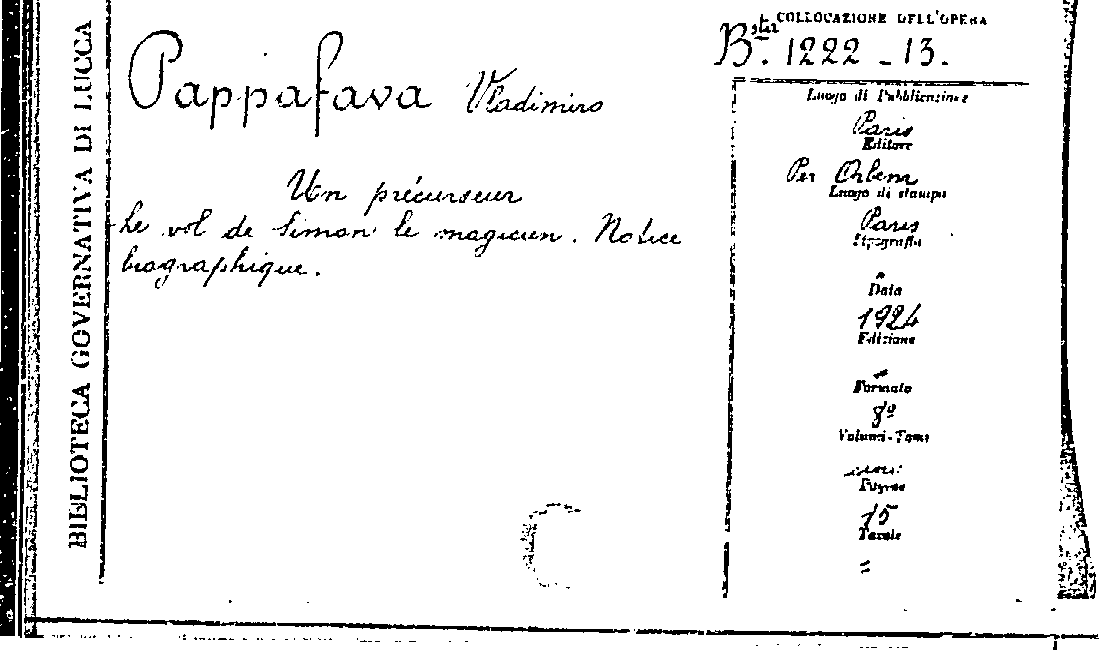 BIBLIOTECA GOVERNATIVA DI LUCCA
Pappafava Vladimiro
Un précurseur
Le vol de Simon le magicien. Notice
biographique.
COLLOCAZIONE DELL'OPERA
Bsta. 1222 - 13.
Luogo di Pubblicazione
Paris
Editore
Per Orbem
Luogo di stampa
Paris
Tipografia
"
Data
1924
Edizione
Formato
8º
Volumi-Tomi
uno
Pagine
15
Tavole
=